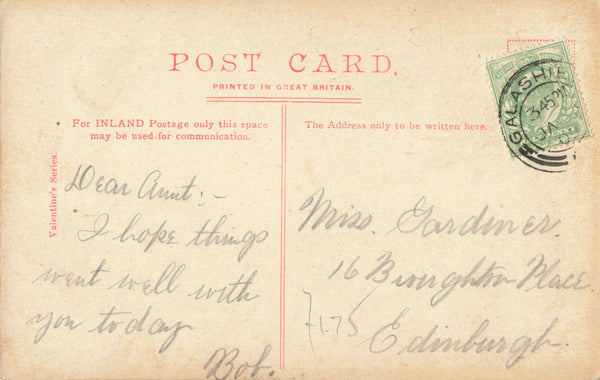 POST CARD.
PRINTED IN GREAT BRITAIN.
For INLAND Postage only this space
may be used for communication.
The Address only to be written here.
Valentine's Series.
Dear Aunt:-
I hope things
went well with
you today
Bob.
Miss. Gardiner.
16 Broughton Place.
Edinburgh.
7.75
GALASHIELS
3.45 PM
JA